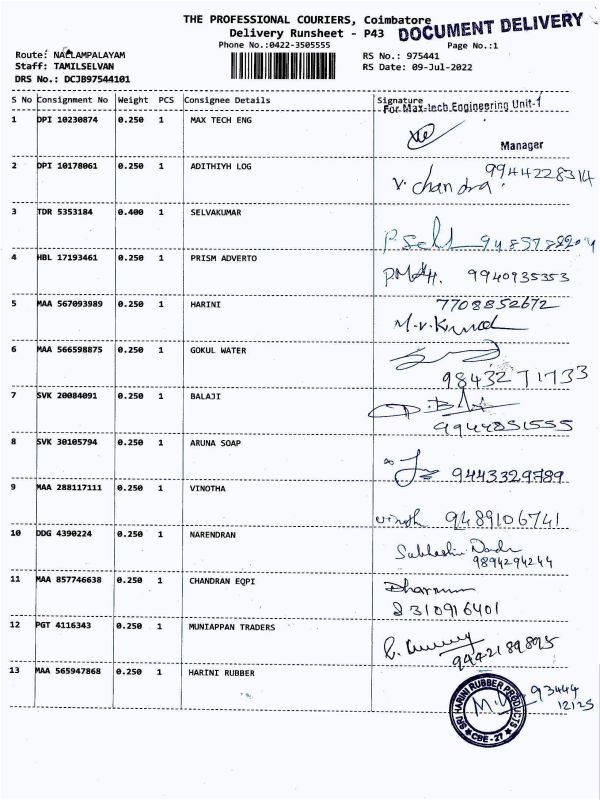 THE PROFESSIONAL COURIERS, Coimbatore
DOCUMENT DELIVERY
Delivery Runsheet - P43
Phone No.:0422-3505555
Page No.:1
Route: NALLAMPALAYAM
RS No.: 975441
Staff: TAMILSELVAN
RS Date: 09-Jul-2022
DRS No.: DCJB97544101
S No Consignment No Weight PCS Consignee Details Signature
For Max-tech Engineering Unit-1
1 DPI 10230874 0.250 1 MAX TECH ENG
Manager
2 DPI 10178061 0.250 1 ADITHIYH LOG
9944228314
V. chandra.
3 TDR 5353184 0.400 1 SELVAKUMAR
4 HBL 17193461 0.250 1 PRISM ADVERTO
9940935353
5 MAA 567093989 0.250 1 HARINI
7708852672
6 MAA 566598875 0.250 1 GOKUL WATER
98432 71733
7 SVK 20084091 0.250 1 BALAJI
9944851555
8 SVK 30105794 0.250 1 ARUNA SOAP
9443329789
9 MAA 288117111 0.250 1 VINOTHA
9489106741
10 DDG 4390224 0.250 1 NARENDRAN
9894294244
11 MAA 857746638 0.250 1 CHANDRAN EQPI
8310916401
12 PGT 4116343 0.250 1 MUNIAPPAN TRADERS
13 MAA 565947868 0.250 1 HARINI RUBBER
93444
12125
SRI HARINI RUBBER PRODUCTS
CBE-27